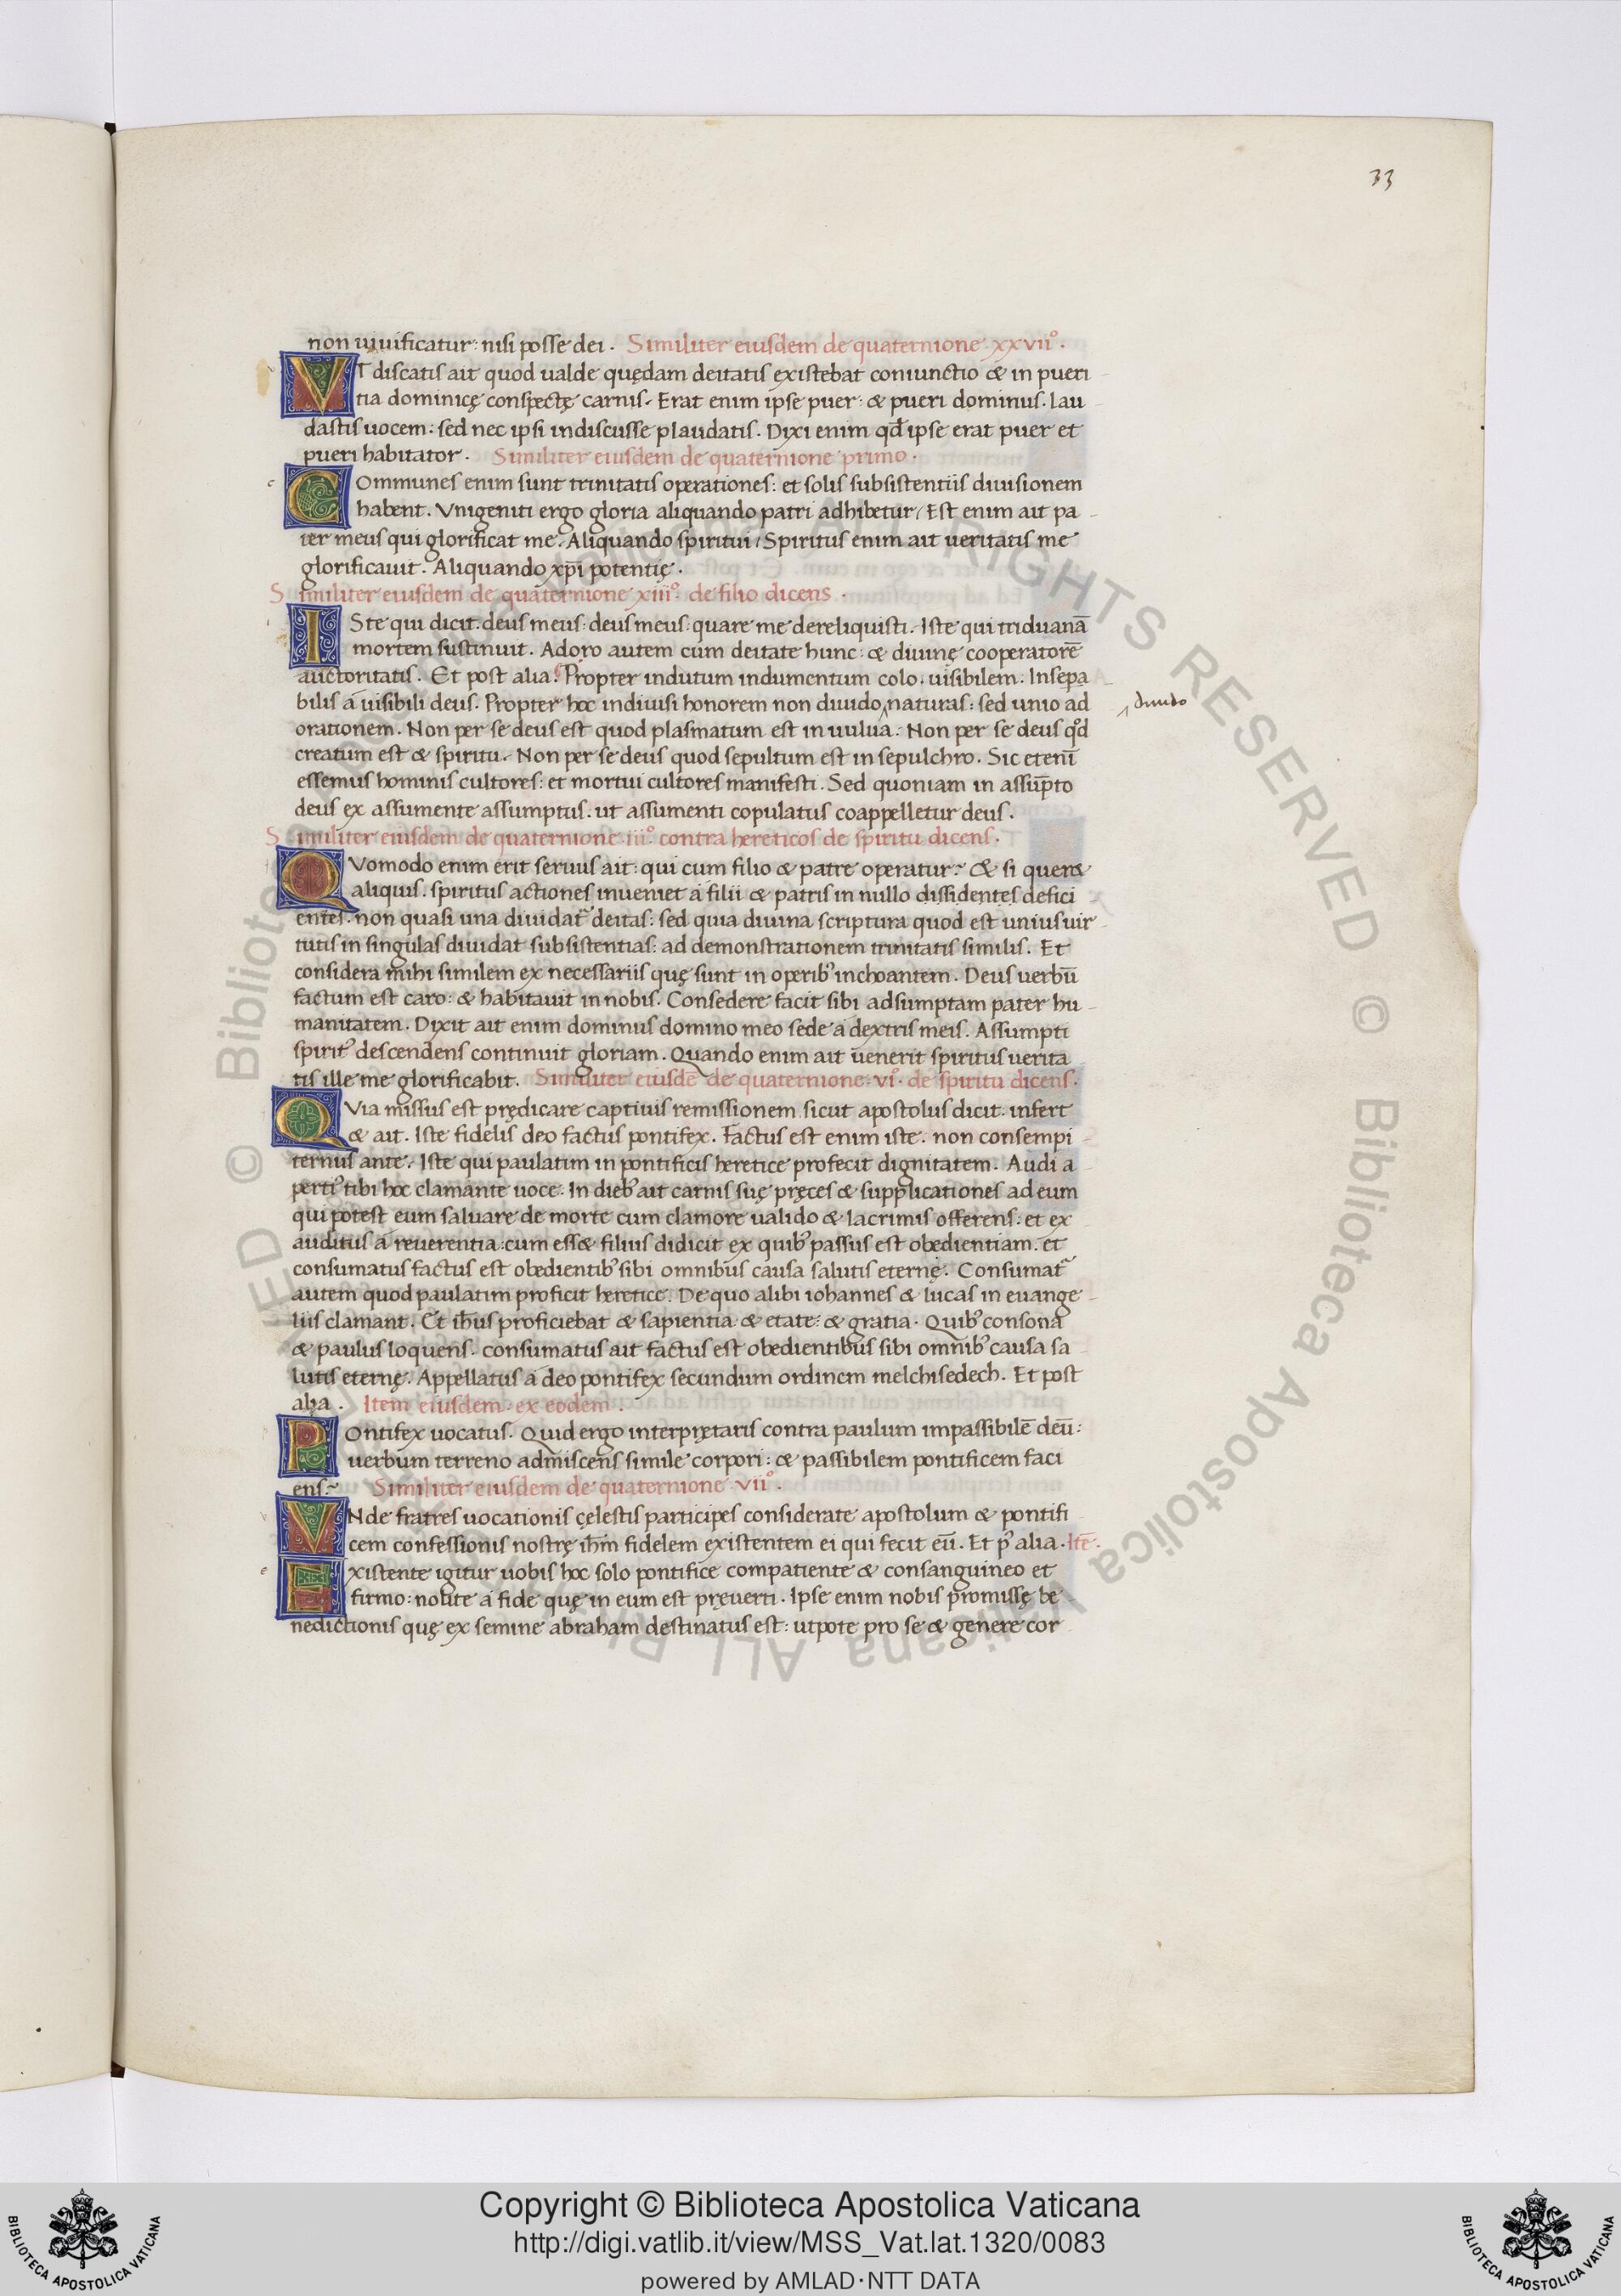 33
non uiuificatur: nisi posse dei. Similiter eiusdem de quaternione xxvii°.
VT discatis ait quod ualde quędam deitatis existebat coniunctio & in pueri
tia dominicę conspectę carnis. Erat enim ipse puer: & pueri dominus. lau
dastis uocem: sed nec ipsi indiscusse plaudatis. Dixi enim qđ ipse erat puer et
pueri habitator. Similiter eiusdem de quaternione primo.
COmmunes enim sunt trinitatis operationes: et solis subsistentiis diuisionem
habent. Vnigeniti ergo gloria aliquando patri adhibetur/ Est enim ait pa
ter meus qui glorificat me. Aliquando spiritui/ Spiritus enim ait ueritatis me
glorificauit. Aliquando xp̄i potentię.
Similiter eiusdem de quaternione xiii°. de filio dicens.
ISte qui dicit. deus meus: deus meus: quare me dereliquisti. Iste qui triduanā
mortem sustinuit. Adoro autem cum deitate hunc: & diuinę cooperatorē
auctoritatis. Et post alia. Propter indutum indumentum colo. uisibilem. Insepa
bilis a uisibili deus. Propter hoc indiuisi honorem non diuido naturas: sed unio ad
diuido
orationem. Non per se deus est quod plasmatum est in uulua. Non per se deus qd̊
creatum est & spiritu. Non per se deus quod sepultum est in sepulchro. Sic etenī
essemus hominis cultores: et mortui cultores manifesti. Sed quoniam in assūpto
deus ex assumente assumptus. ut assumenti copulatus coappelletur deus.
Similiter eiusdem de quaternione iii°. contra hereticos de spiritu dicens.
QVomodo enim erit seruus ait: qui cum filio & patre operatur? & si quer&
aliquis. spiritus actiones inueniet a filii & patris in nullo dissidentes defici
entes. non quasi una diuidat᷑ deitas: sed quia diuina scriptura quod est unius uir
tutis in singulas diuidat subsistentias: ad demonstrationem trinitatis similis. Et
considera mihi similem ex necessariis quę sunt in operib᷒ inchoantem. Deus uerbū
factum est caro: & habitauit in nobis. Consedere facit sibi adsumptam pater hu
manitatem. Dixit ait enim dominus domino meo sede a dextris meis. Assumpti
spirit᷒ descendens continuit gloriam. Quando enim ait uenerit spiritus uerita
tis ille me glorificabit. Similiter eiusdē de quaternione vi°. de spiritu dicens.
QVia missus est prędicare captiuis remissionem sicut apostolus dicit. infert
& ait. Iste fidelis deo factus pontifex. Factus est enim iste. non consempi
ternus ante. Iste qui paulatim in pontificis heretice profecit dignitatem. Audi a
perti᷒ tibi hoc clamante uoce. In dieb᷒ ait carnis suę pręces & supplicationes ad eum
qui potest eum saluare de morte cum clamore ualido & lacrimis offerens: et ex
auditus a reuerentia: cum ess& filius didicit ex quib᷒ passus est obedientiam. et
consumatus factus est obedientib᷒ sibi omnibus causa salutis eternę. Consumat᷑
autem quod paulatim proficit heretice. De quo alibi iohannes & lucas in euange
liis clamant. Et ih̄us proficiebat & sapientia & etate: & gratia. Quib᷒ consona
& paulus loquens. consumatus ait factus est obedientibus sibi omnib᷒ causa sa
lutis eternę. Appellatus a deo pontifex secundum ordinem melchisedech. Et post
alia. Item eiusdem. ex eodem.
POntifex uocatus. Quid ergo interpretaris contra paulum impassibilē deū:
uerbum terreno admiscens simile corpori: & passibilem pontificem faci
ens? Similiter eiusdem de quaternione vii°.
VNde fratres uocationis cęlestis participes considerate apostolum & pontifi
cem confessionis nostrę ih̄m fidelem existentem ei qui fecit eū. Et p᷒ alia. Itē.
Existente igitur uobis hoc solo pontifice compatiente & consanguineo et
firmo: nolite a fide quę in eum est pręuerti. Ipse enim nobis promissę be
nedictionis quę ex semine abraham destinatus est: utpote pro se & genere cor
Copyright © Biblioteca Apostolica Vaticana
http://digi.vatlib.it/view/MSS_Vat.lat.1320/0083
powered by AMLAD·NTT DATA
BIBLIOTECA APOSTOLICA VATICANA
BIBLIOTECA APOSTOLICA VATICANA